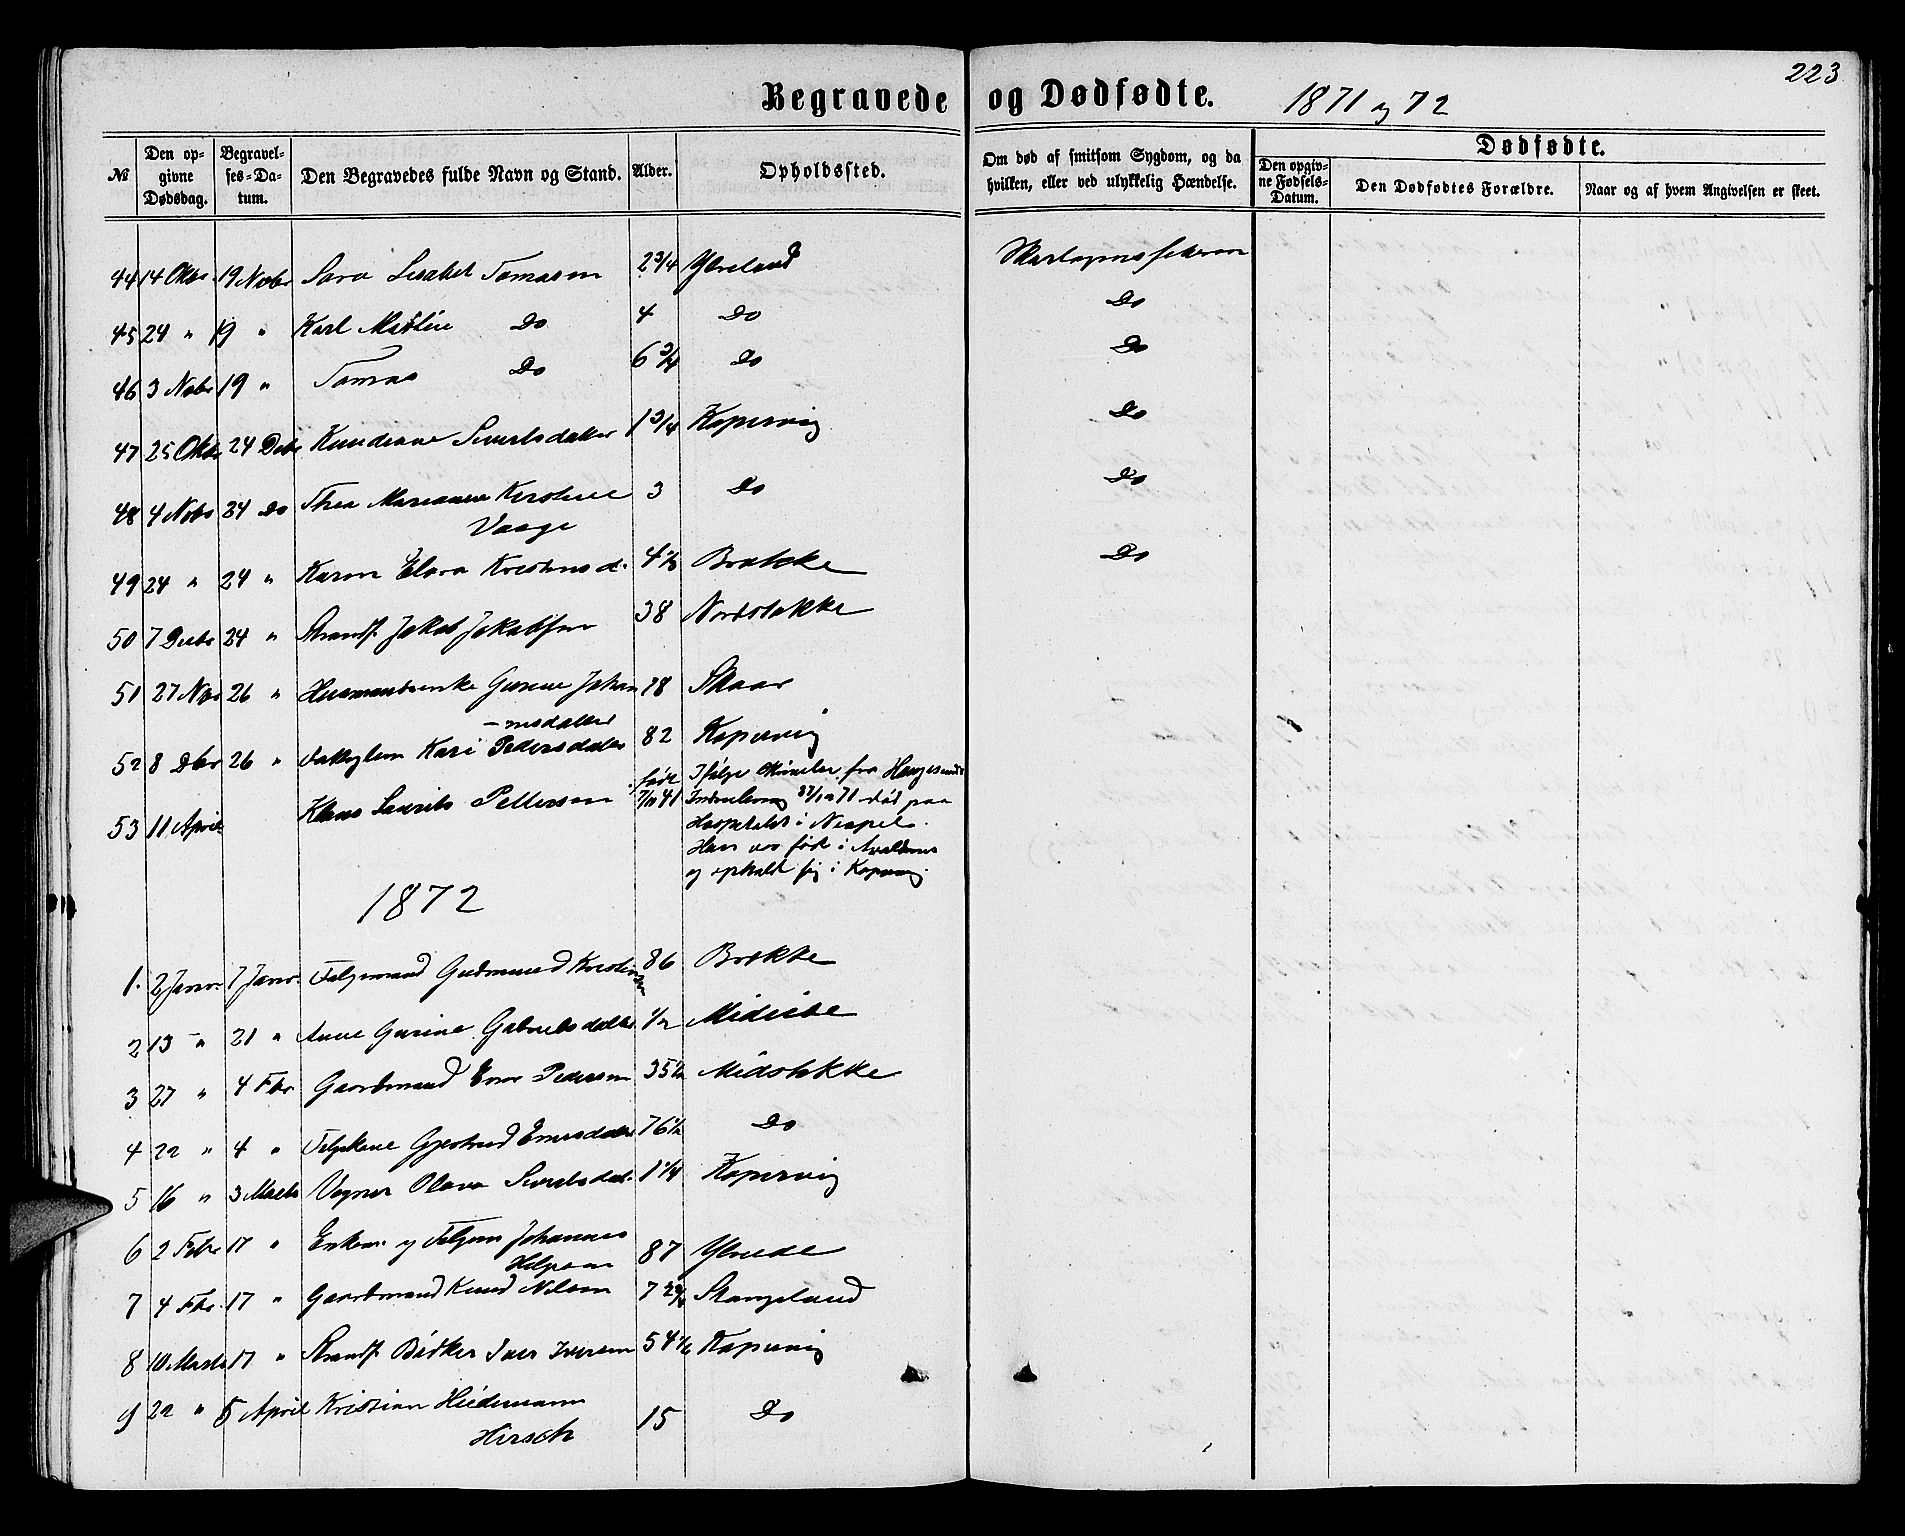 223
Begravede og Dødfødte. 1871 og 72
№ Den opgivne Dødsdag. Begravelses-Datum. Den Begravedes fulde Navn og Stand. Alder. Opholdssted. Om død af smitsom Sygdom, og da hvilken, eller ved ulykkelig Hændelse.
Dødfødte.
Den opgivne Fødsels-Datum. Den Dødfødtes Forældre. Naar og af hvem Angivelsen er skeet.
44 14 Oktbr 19 Novbr Sara Lisabet Tomasen 2 3/4 Skarlagensfeberen
45 24 " 19 " Karl Do 4 Do Do
46 3 Novbr 19 " Tomas Do 6 3/4 Do Do
47 25 Oktbr 24 Debr Sivertsdatter 1 3/4 Kopervig Do
48 4 Novbr 24 Do Thea Marianne Kirstine 3 Do Do
Vaage
49 24 " 24 " Karen Elora Kristensd. 4 1/2 Brække Do
50 7 Decbr 24 " Strands. Jakob Jakobsen 38 Nordstokke
51 27 Nov 26 " Husmandsenke Gurine Johan 78 Skaar
-nesdatter
52 8 Dbr 26 " Fattiglem Kari Pedersdatter 82 Kopervig
53 11 April Klaus Laurits Pettersen født 7/12 41 Ifølge fra Haugesunds
71 død paa
Hospitalet i Neapel.
Han var født i Avaldsnes
og opholdt sig i Kopervig.
1872
1. 2 Janr. 7 Janr. Føderaad Gudmund Kristensen 86 Brække
2 13 " 21 " Anne Gurine Gabrielsdatter 1/2 Midtbø
3 27 " 4 Fbr Gaardmand Ener Pedersen 35 1/2 Midstokke
4 22 " 4 " Gjertrud Enersdatter 76 1/2 Do
5 16 " 3 Marts Olava Sivertsdat. 1 1/4 Kopervig
6 2 Febr 17 " Enkem. og Johannes
Helgesen 87
7 4 Fbr. 17 " Gaardmand Knud Nilsen 72 Stangeland
8 10 Marts 17 " Strands. Bødker Iver Iversen 54 1/2 Kopervig
9 22 " 5 April Kristian Hiedemann
Hirsch 15 Do